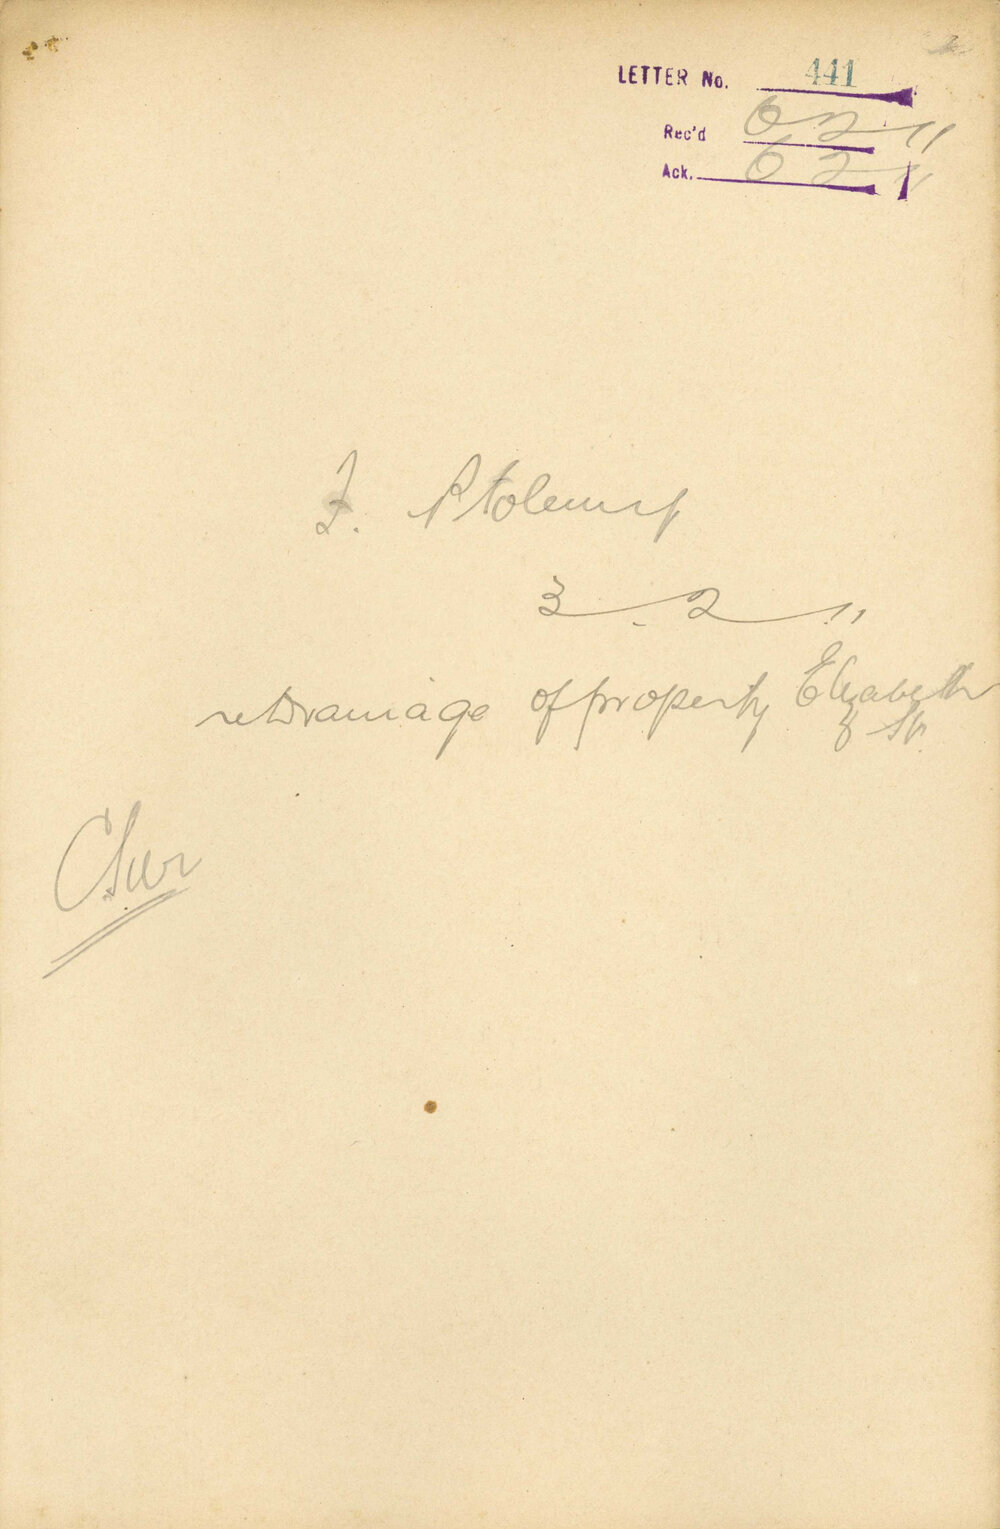 LETTER No. 441
Rec'd 6 2 11
Ack. 6 2 11
F. Ptolemy
3. 2. 11
re Drainage of property Elizabeth
St.